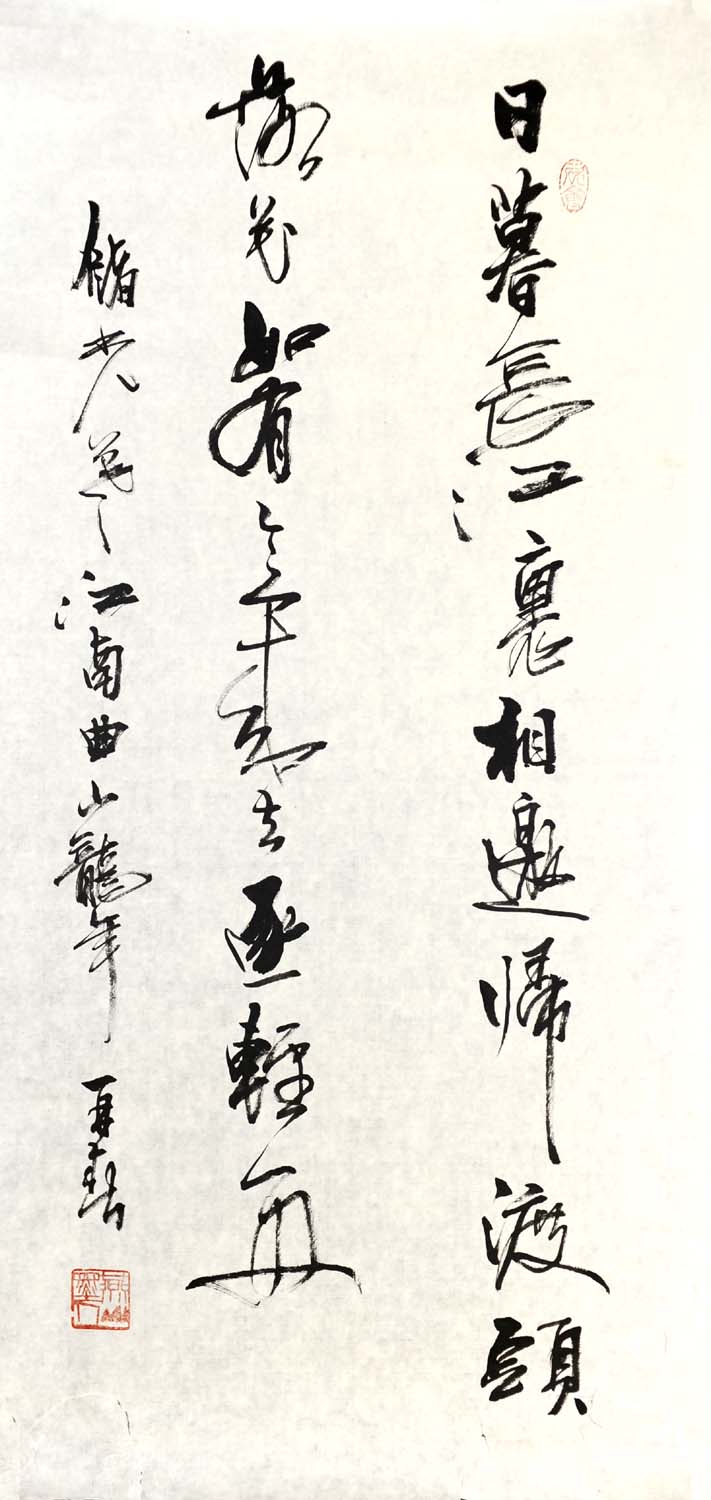 日暮長江裏相邀歸渡頭
落花如有意來去逐輕舟
儲光羲江南曲小龍年